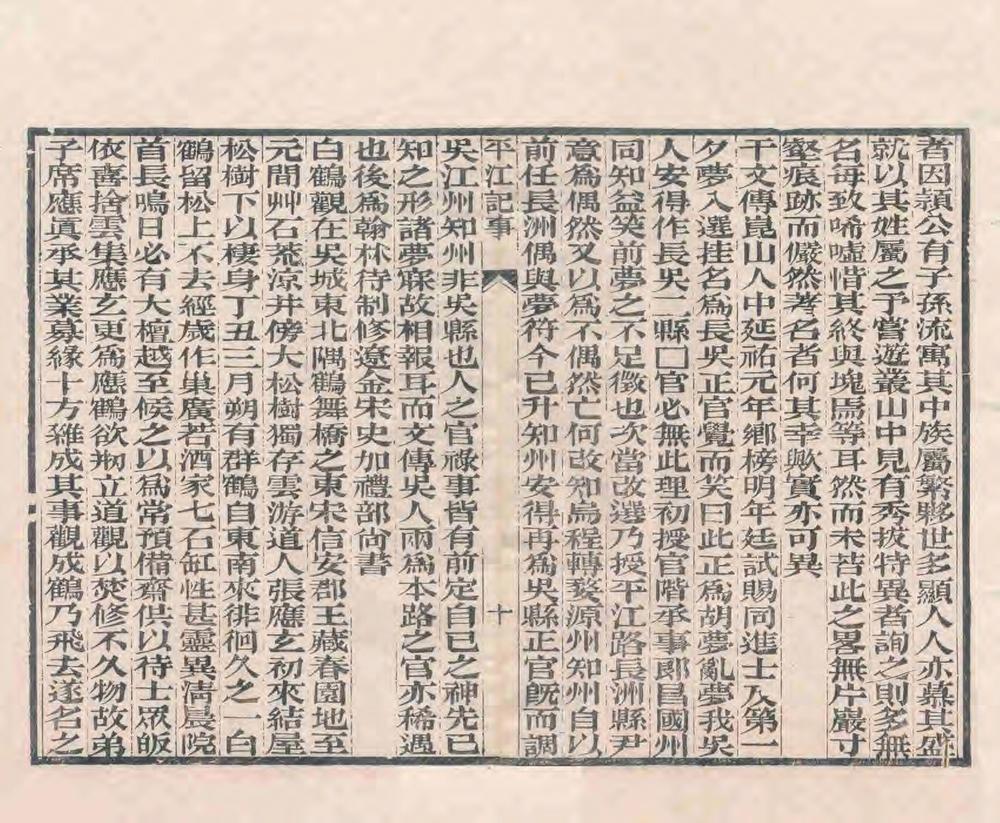 者因潁公有子孫流寓其中族屬繁夥世多顯人人亦慕其盛
就以其姓屬之予嘗遊叢山中見有秀拔特異者詢之則多無
名每致唏噓惜其終與塊焉等耳然而未若此之畧無片巖寸
壑痕跡而儼然著名者何其幸歟實亦可異
干文傳崑山人中延祐元年鄉榜明年廷試賜同進士及第一
夕夢入選挂名為長吳正官覺而笑曰此正為胡夢亂夢我吳
人安得作長吳二縣囗官必無此理初授官階承事郎昌國州
同知益笑前夢之不足徵也次當改選乃授平江路長洲縣尹
意為偶然又以為不偶然亡何改知烏程轉婺源州知州自以
前任長洲偶與夢符今已升知州安得再為吳縣正官既而調
平江記事
十
吳江州知州非吳縣也人之官祿事皆有前定自已之神先已
知之形諸夢寐故相報耳而文傳吳人兩為本路之官亦稀遇
也後為翰林待制修遼金宋史加禮部尚書
白鶴觀在吳城東北隅鶴舞橋之東宋信安郡王藏春園地至
元間艸石荒涼井傍大松樹獨存雲游道人張應玄初來結屋
松樹下以棲身丁丑三月朔有群鶴自東南來徘徊久之一白
鶴留松上不去經歲作巢廣若酒家七石缸性甚靈異清晨院
首長鳴日必有大檀越至候之以為常預備齋供以待士眾皈
依喜捨雲集應玄更為應鶴欲刱立道觀以焚修不久物故弟
子席應真承其業募緣十方雜成其事觀成鶴乃飛去遂名之